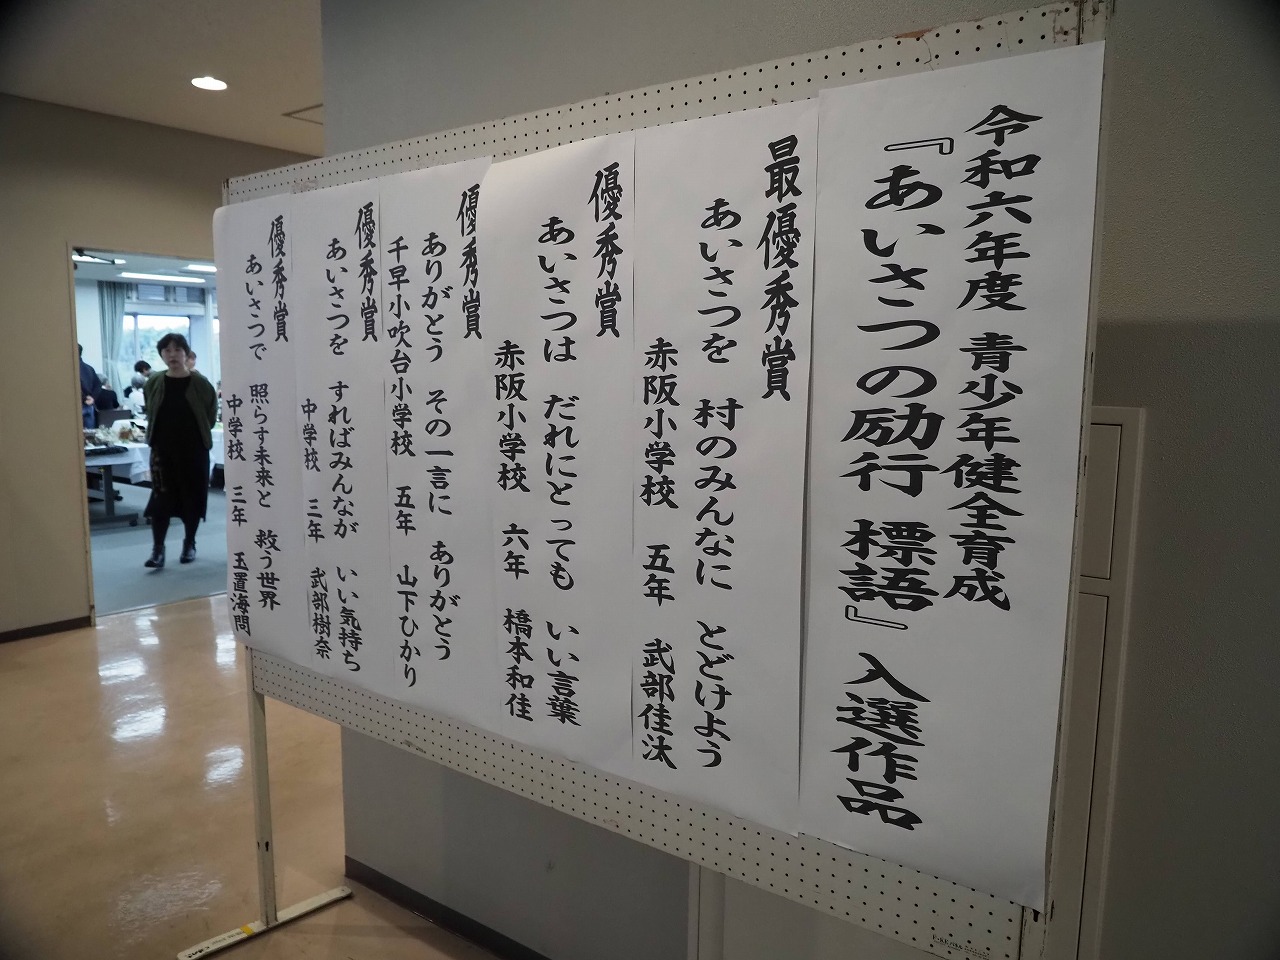 令和六年度 青少年健全育成
『あいさつの励行 標語』入選作品
最優秀賞
あいさつを 村のみんなに とどけよう
赤阪小学校 五年 武部佳汰
優秀賞
あいさつは だれにとっても いい言葉
赤阪小学校 六年 橋本和佳
優秀賞
ありがとう その一言に ありがとう
千早小吹台小学校 五年 山下ひかり
優秀賞
あいさつを すればみんなが いい気持ち
中学校 三年 武部樹奈
優秀賞
あいさつで 照らす未来と 救う世界
中学校 三年 玉置海問